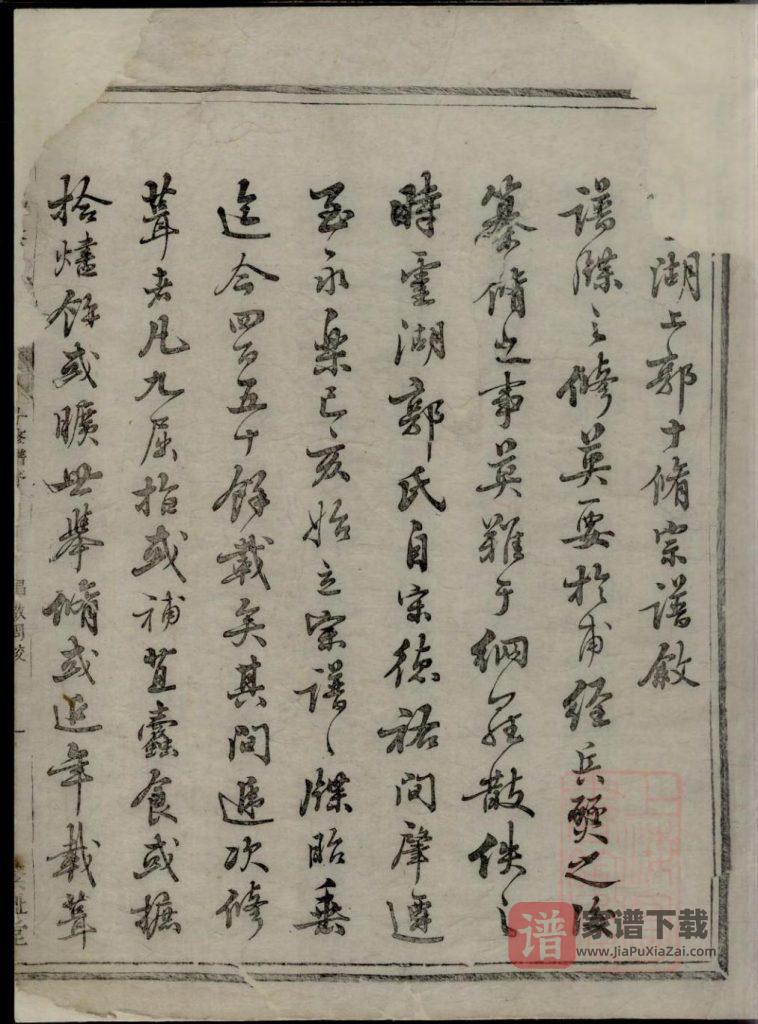 湖上郭十脩宗譜敘
譜牒之修莫要於甫經兵燹之後
纂脩之事莫難于網羅散佚之
時靈湖郭氏自宗德祐間肇遷
至永樂己亥始立宗譜〻牒昭垂
迄今四百五十餘載矣其間遞次修
葺者凡九屈指或補苴蠹食或摭
拾燼餘或曠世舉脩或近年載葺
十修譜序
譜
家谱下载
www.JiaPuXiaZai.com